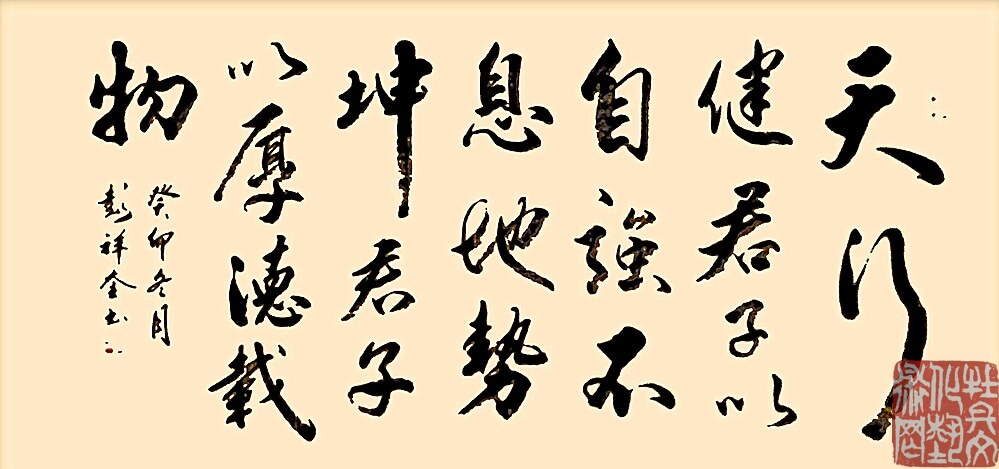 天行
健君子以
自強不
息地勢
坤君子
以厚德載
物
癸卯冬月
彭祥金书